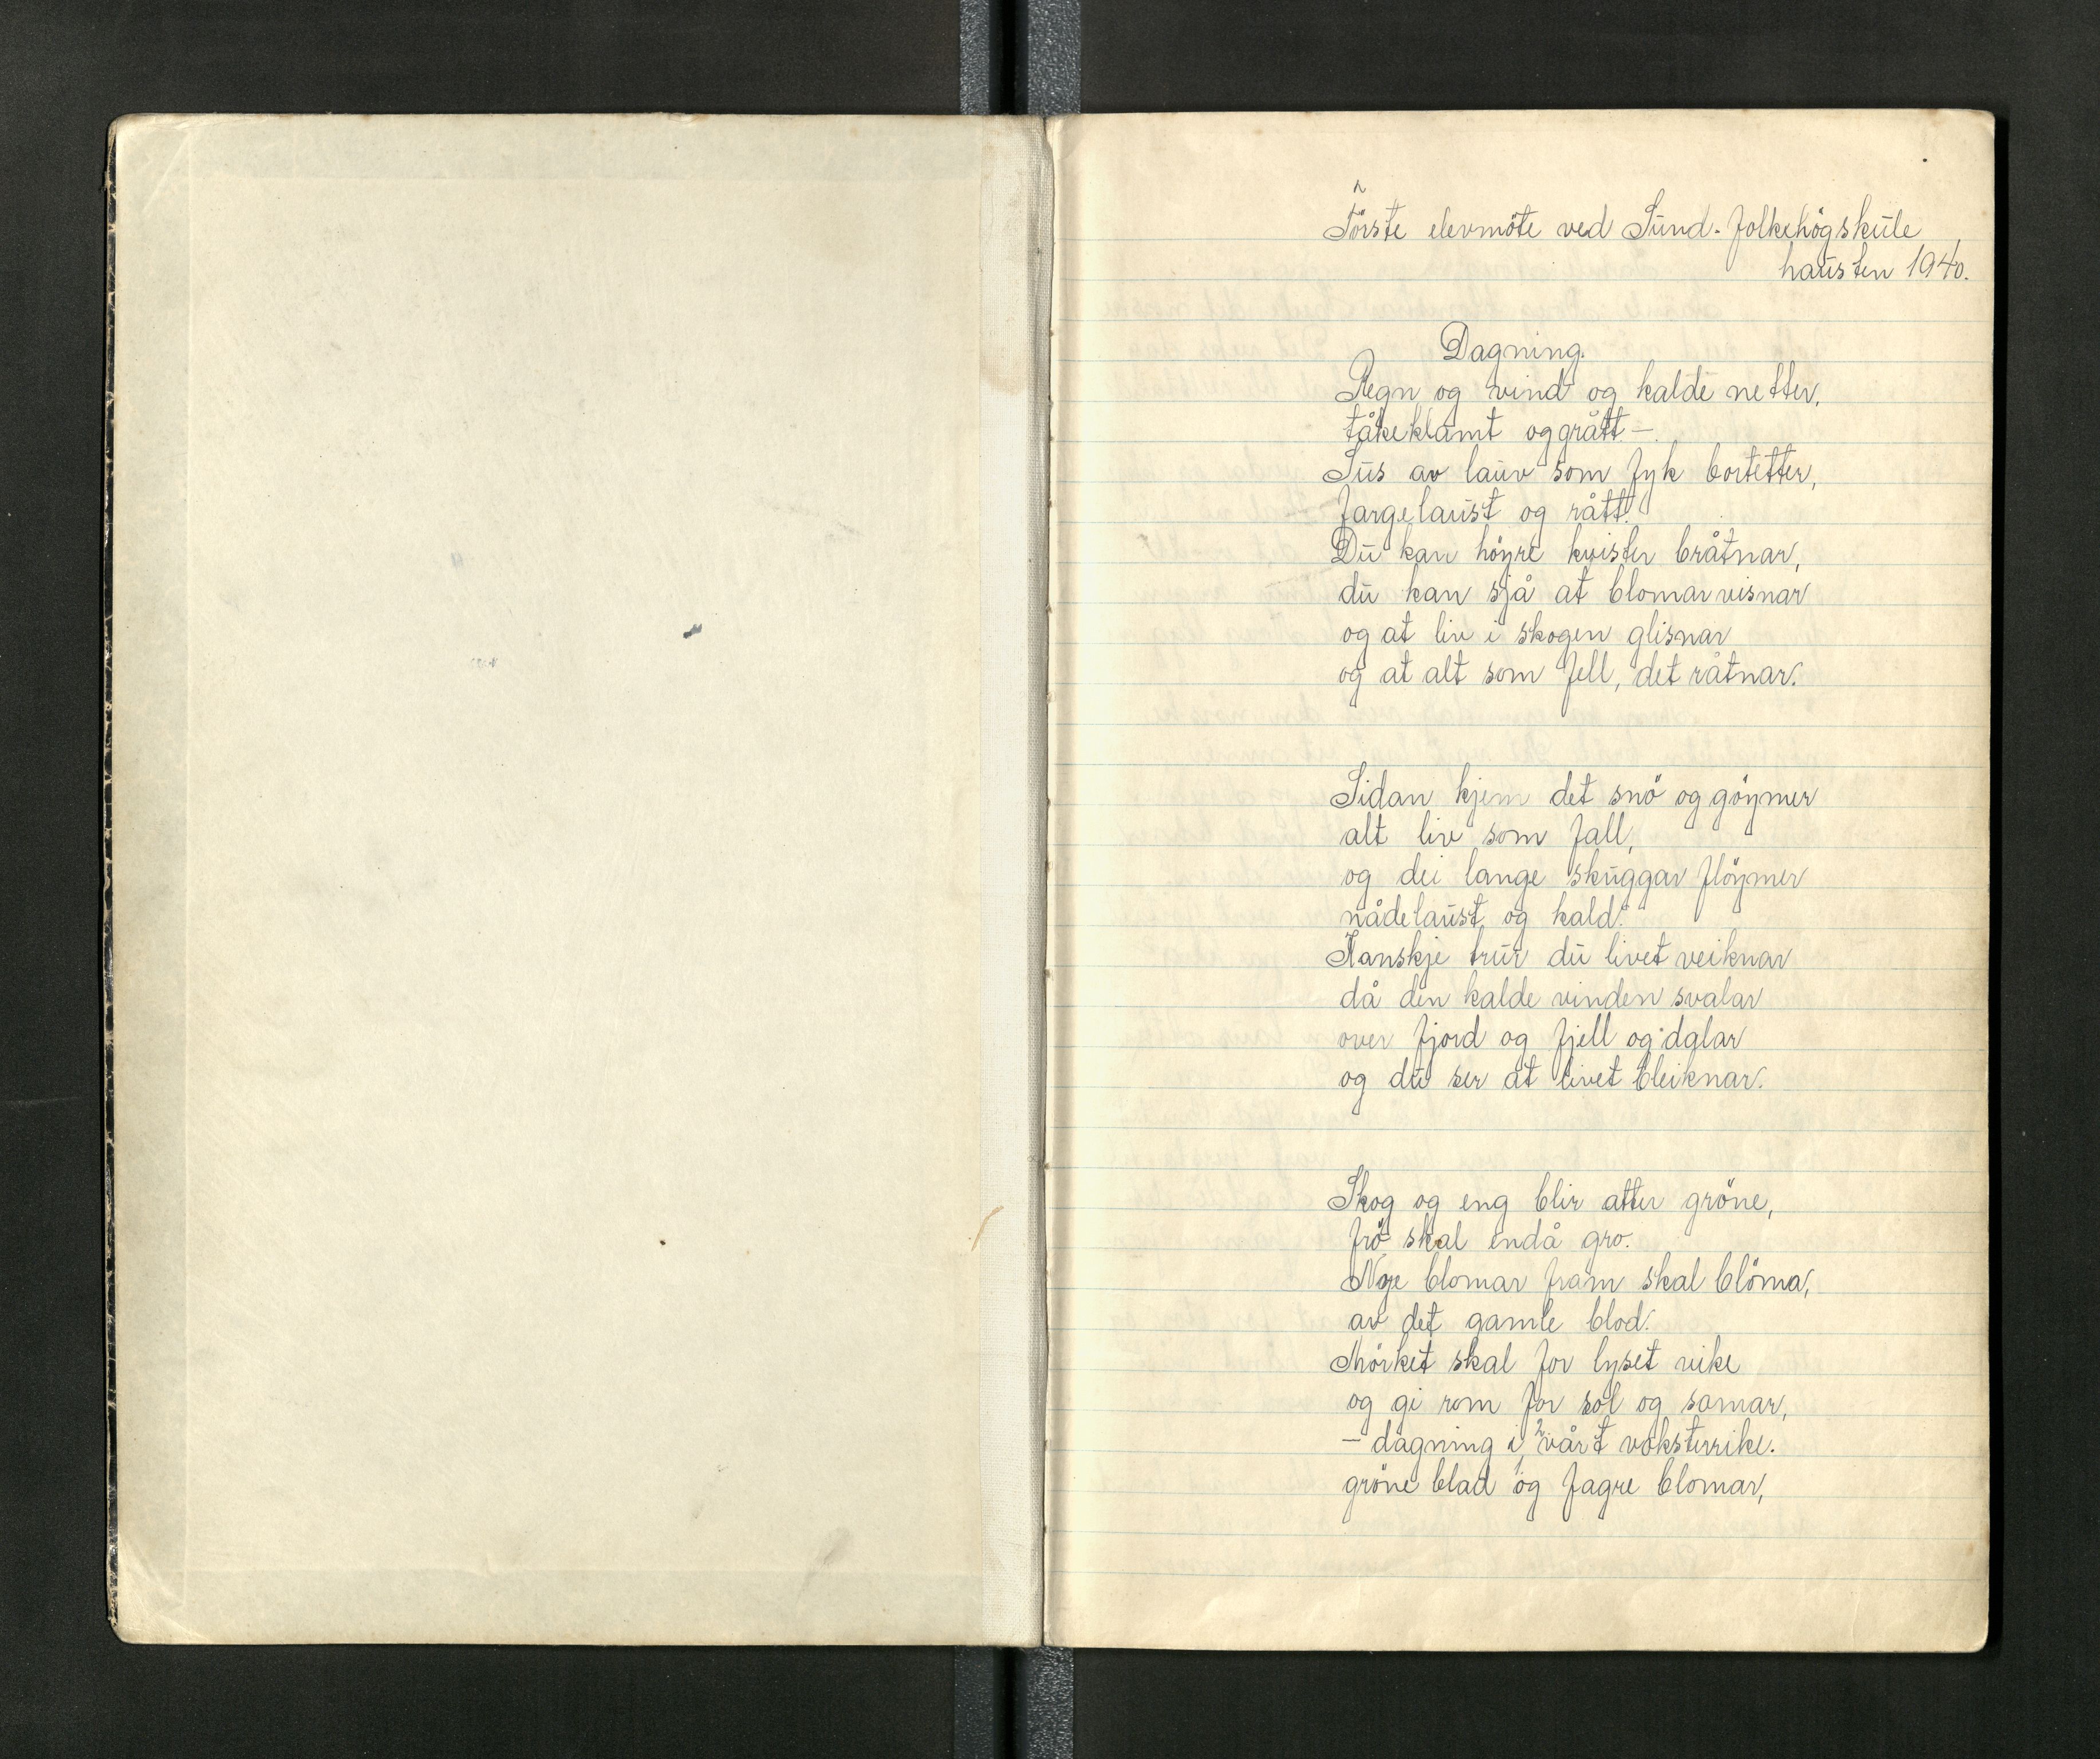 Förste elevmöte ved Sund. folkehögskule
hausten 1940.
Dagning.
Regn og vind og kalde netter,
tåkeklamt og grått —.
Sus av lauv som fyk bortetter,
fargelaust og rått.
Du kan höyre kvister bråtnar,
du kan sjå at blomar visnar
og at liv i skogen glisnar
og at alt som fell, det råtnar.
Sidan kjem det snö og göymer
alt liv som fall,
og dei lange skuggar flöymer
nådelaust og kald.
Kanskje trur du livet veiknar
då den kalde vinden svalar
over fjord og fjell og dalar
og du ser at livet bleiknar.
Skog og eng blir atter gröne,
frö skal endå gro.
Nye blomar fram skal blöma,
av det gamle blod.
Mörket skal for lyset vike
og gi rom for sol og somar,
— dagning i vårt voksterrike.
gröne blad og fagre blomar,